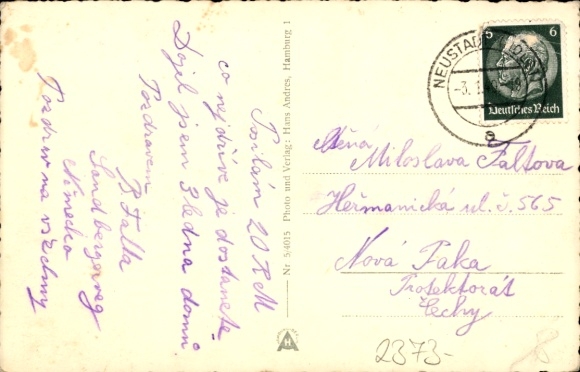 Posílám 20 RM
co nejdříve je dostanete
Dojel jsem 3 ledna domů
Pozdravem
B Falta
Sandbergerweg
Německo
Pozdrav na všechny
Nr 5/4015 Photo und Verlag: Hans Andres, Hamburg 1
NEUSTADT
-3. 1.
a
5 6
Deutsches Reich
Miloslava Faltova
Heřmanická ul. č. 565
Nová Paka
Protektorát
Čechy
2373-
8